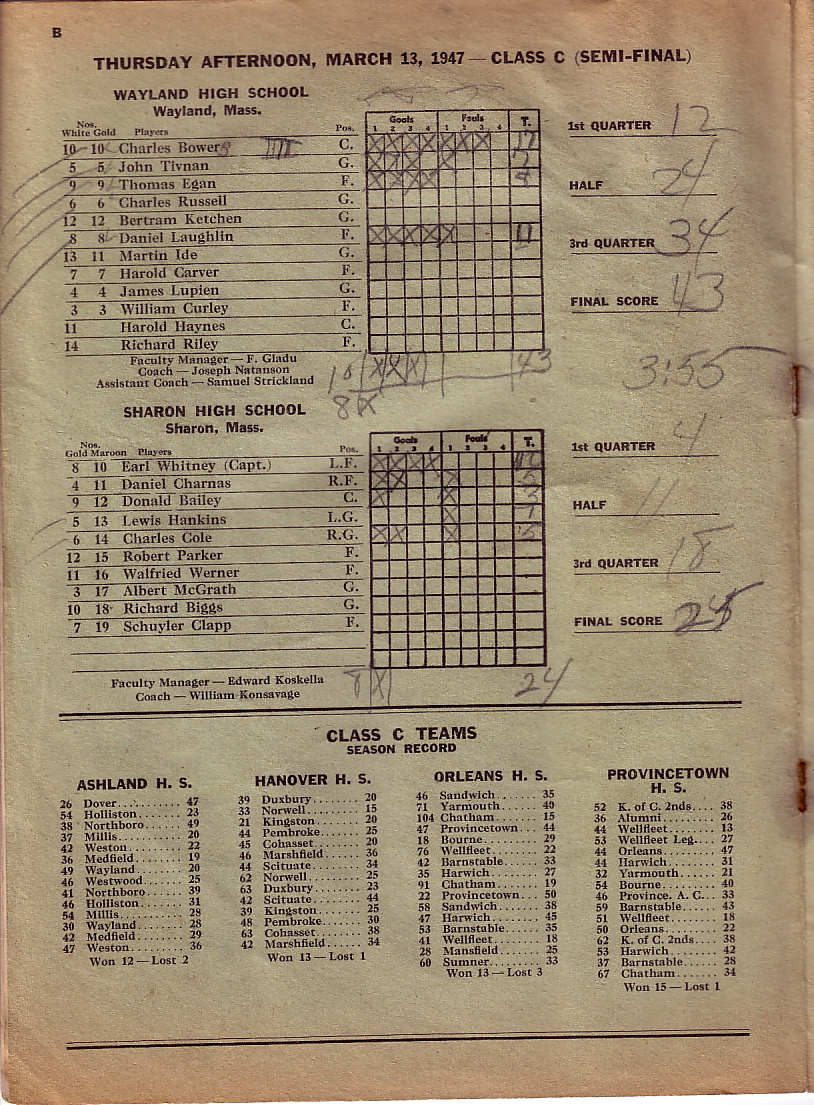 B
THURSDAY AFTERNOON, MARCH 13, 1947 — CLASS C (SEMI-FINAL)
WAYLAND HIGH SCHOOL
Wayland, Mass.
Nos.
White Gold Players Pos.
Goals Fouls T.
1 2 3 4 1 2 3 4
10 10 Charles Bowers C. 17
5 5 John Tivnan G. 7
9 9 Thomas Egan F. 8
6 6 Charles Russell G.
12 12 Bertram Ketchen G.
8 8 Daniel Laughlin F. 11
13 11 Martin Ide G.
7 7 Harold Carver F.
4 4 James Lupien G.
3 3 William Curley F.
11 Harold Haynes C.
14 Richard Riley F.
Faculty Manager — F. Gladu
Coach — Joseph Natanson
Assistant Coach — Samuel Strickland
10 X X X 43
8 X
1st QUARTER 12
HALF 24
3rd QUARTER 34
FINAL SCORE 43
3:55
SHARON HIGH SCHOOL
Sharon, Mass.
Nos.
Gold Maroon Players Pos.
Goals Fouls T.
1 2 3 4 1 2 3 4
8 10 Earl Whitney (Capt.) L.F.
4 11 Daniel Charnas R.F. 5
9 12 Donald Bailey C. 3
5 13 Lewis Hankins L.G. 1
6 14 Charles Cole R.G. 5
12 15 Robert Parker F.
11 16 Walfried Werner F.
3 17 Albert McGrath G.
10 18 Richard Biggs G.
7 19 Schuyler Clapp F.
Faculty Manager — Edward Koskella
Coach — William Konsavage
8 X 24
1st QUARTER 4
HALF 11
3rd QUARTER 18
FINAL SCORE
CLASS C TEAMS
SEASON RECORD
ASHLAND H. S.
26 Dover........... 47
54 Holliston....... 23
38 Northboro....... 49
37 Millis........... 20
42 Weston.......... 22
36 Medfield......... 19
49 Wayland......... 20
46 Westwood........ 25
41 Northboro....... 39
46 Holliston........ 31
54 Millis........... 28
30 Wayland......... 28
42 Medfield......... 29
47 Weston.......... 36
Won 12 — Lost 2
HANOVER H. S.
39 Duxbury........ 20
33 Norwell......... 15
21 Kingston........ 20
44 Pembroke....... 25
45 Cohasset........ 20
46 Marshfield...... 36
44 Scituate........ 34
62 Norwell......... 25
63 Duxbury........ 23
42 Scituate........ 44
39 Kingston........ 25
48 Pembroke....... 30
63 Cohasset........ 38
42 Marshfield...... 34
Won 13 — Lost 1
ORLEANS H. S.
46 Sandwich....... 35
71 Yarmouth....... 40
104 Chatham........ 15
47 Provincetown... 44
18 Bourne......... 29
76 Wellfleet........ 22
42 Barnstable...... 33
35 Harwich........ 27
91 Chatham........ 19
22 Provincetown... 50
58 Sandwich....... 38
47 Harwich........ 45
53 Barnstable...... 35
41 Wellfleet........ 18
28 Mansfield....... 25
60 Sumner......... 33
Won 13 — Lost 3
PROVINCETOWN
H. S.
52 K. of C. 2nds.... 38
36 Alumni.......... 26
44 Wellfleet........ 13
53 Wellfleet Leg.... 27
44 Orleans......... 47
44 Harwich........ 31
32 Yarmouth....... 21
54 Bourne......... 40
46 Province. A. C... 33
59 Barnstable...... 43
51 Wellfleet........ 18
50 Orleans......... 22
62 K. of C. 2nds.... 38
53 Harwich........ 42
37 Barnstable...... 28
67 Chatham........ 34
Won 15 — Lost 1